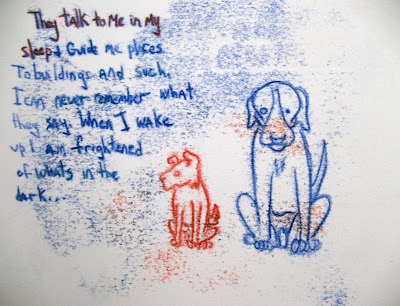 They talk to Me in My
sleep & Guide me places
To buildings and such.
I can never remember what
they say. When I wake
up I am frightened
of whats in the
dark...